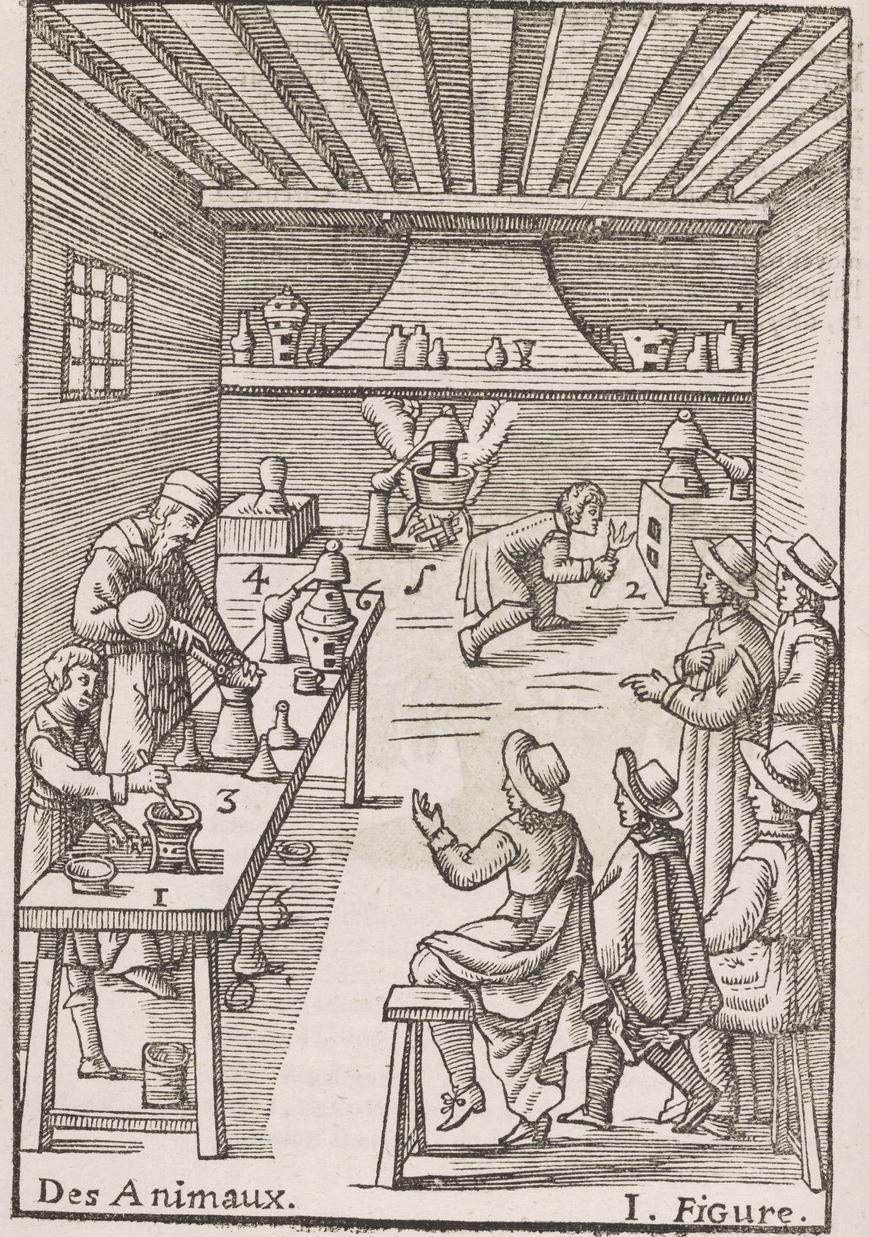 4
5
2
6
3
1
Des Animaux.
I. FiGure.